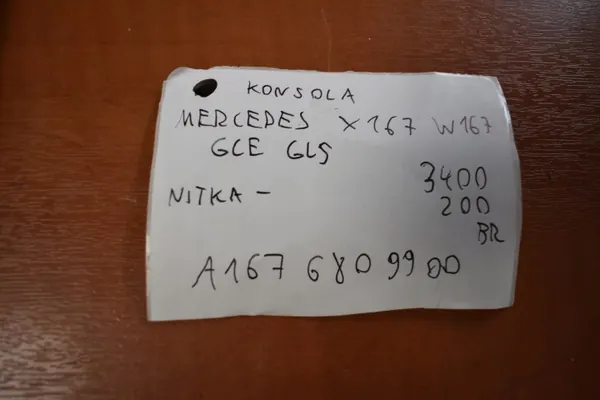 KONSOLA
MERCEDES X167 W167
GLE GLS
3400
NITKA - 200
BR
A167 680 9900